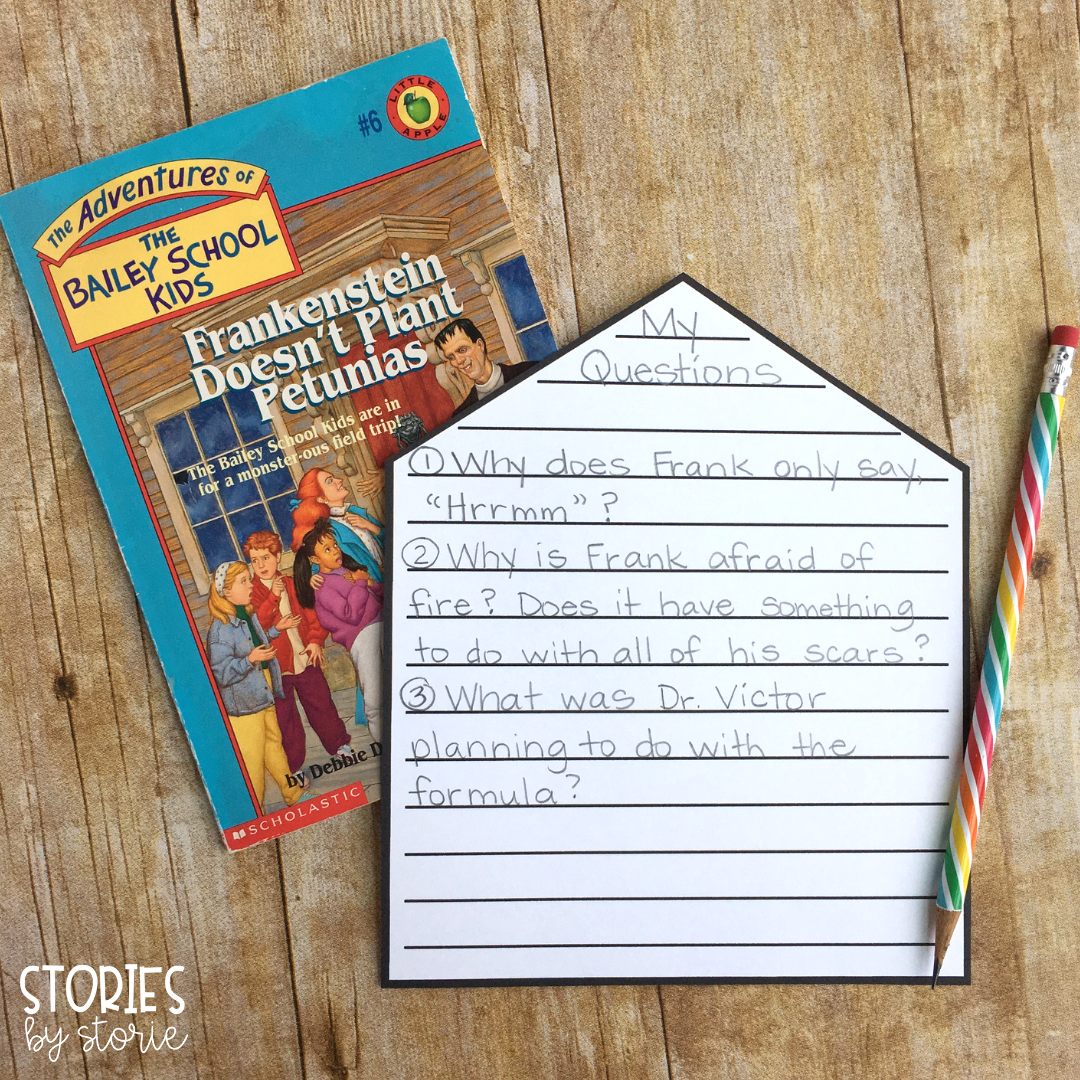 #6
LITTLE APPLE
The Adventures of
THE
BAILEY SCHOOL
KIDS
Frankenstein
Doesn't Plant
Petunias
The Bailey School Kids are in
for a monster-ous field trip!
by Debbie D
SCHOLASTIC
My
Questions
① Why does Frank only say,
"Hrrmm"?
② Why is Frank afraid of
fire? Does it have something
to do with all of his scars?
③ What was Dr. Victor
planning to do with the
formula?
STORIES
by storie